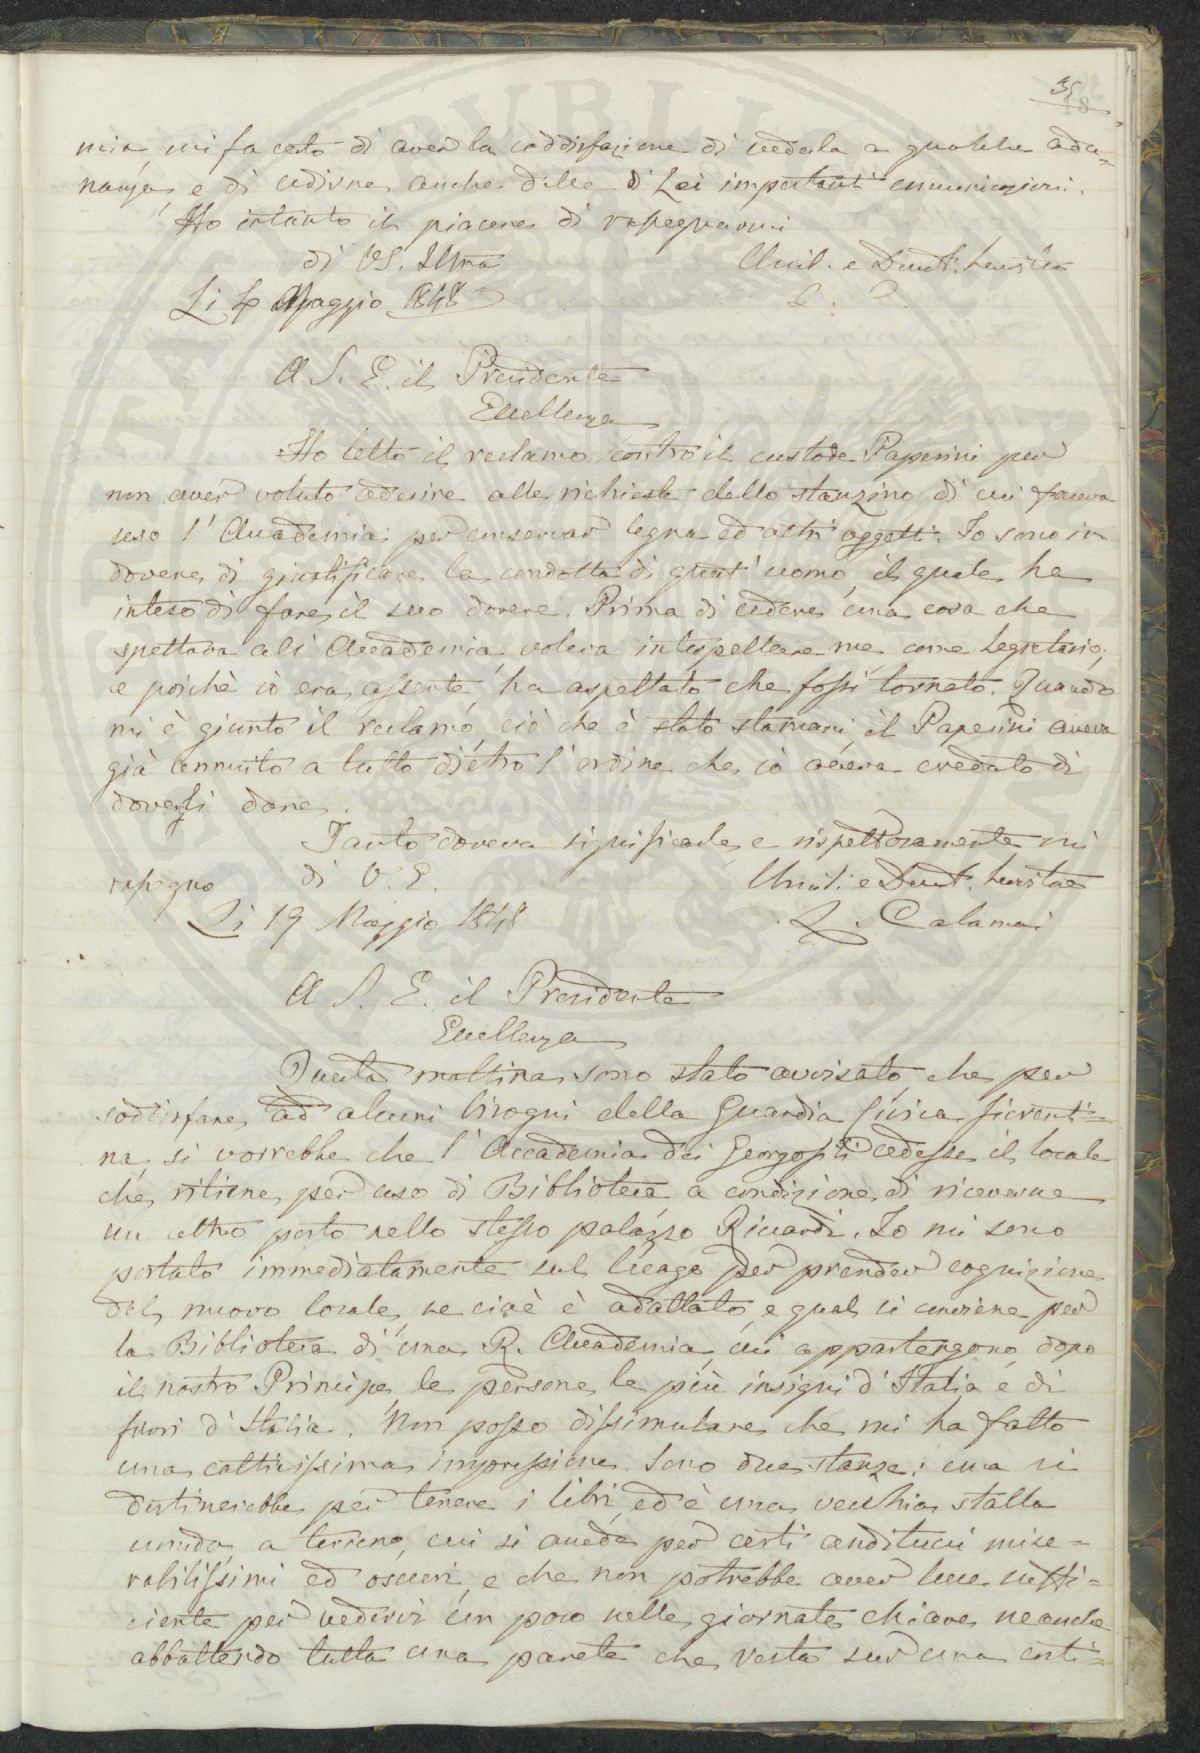 35
18
mia, mi fo certo di aver la soddisfazione di vederla a qualche adu=
nanza, e di udirne anche delle di Lei importanti comunicazioni.
Ho intanto il piacere di rassegnarmi
di VS. Illma Umil. e Devot. Servitre
Li 4 Maggio 1848 L. C.
A S. E. il Presidente
Eccellenza
Ho letto il reclamo contro il custode Paperini per
non aver voluto aderire alle richieste dello stanzino di cui faceva
uso l'Accademia per conservar legna ed altri oggetti. Io sono in
dovere di giustificare la condotta di quest'uomo, il quale ha
inteso di fare il suo dovere. Prima di cedere una cosa che
spettava all'Accademia voleva interpellare me come Segretario,
e poichè io era assente, ha aspettato che fossi tornato. Quando
mi è giunto il reclamo, ciò che è stato stamani, il Paperini aveva
già annuito a tutto dietro l'ordine che io aveva creduto di
dovergli dare.
Tanto doveva significarle, e rispettosamente mi
rassegno di V. E. Umil. e Devot. Servitre
Li 19 Maggio 1848 L. Calamai
A S. E. il Presidente
Eccellenza
Questa mattina sono stato avvisato, che per
soddisfare ad alcuni bisogni della Guardia Civica fiorenti=
na, si vorrebbe che l'Accademia dei Georgofili cedesse il locale
che ritiene per uso di Biblioteca a condizione di riceverne
un altro posto nello stesso palazzo Riccardi. Io mi sono
portato immediatamente sul luogo per prender cognizione
del nuovo locale, se cioè è adattato, e qual si conviene per
la Biblioteca di una R. Accademia, cui appartengono, dopo
il nostro Principe, le persone le più insigni d'Italia e di
fuori d'Italia. Non posso dissimulare che mi ha fatto
una cattivissima impressione. Sono due stanze: una si
destinerebbe per tenere i libri, ed è una vecchia stalla
umida, a terreno, cui si accede per certi anditucci mise=
rabilissimi ed oscuri, e che non potrebbe aver luce suffi=
ciente per vedervi un poco nelle giornate chiare neanche
abbattendo tutta una parete che resta sur una corti=